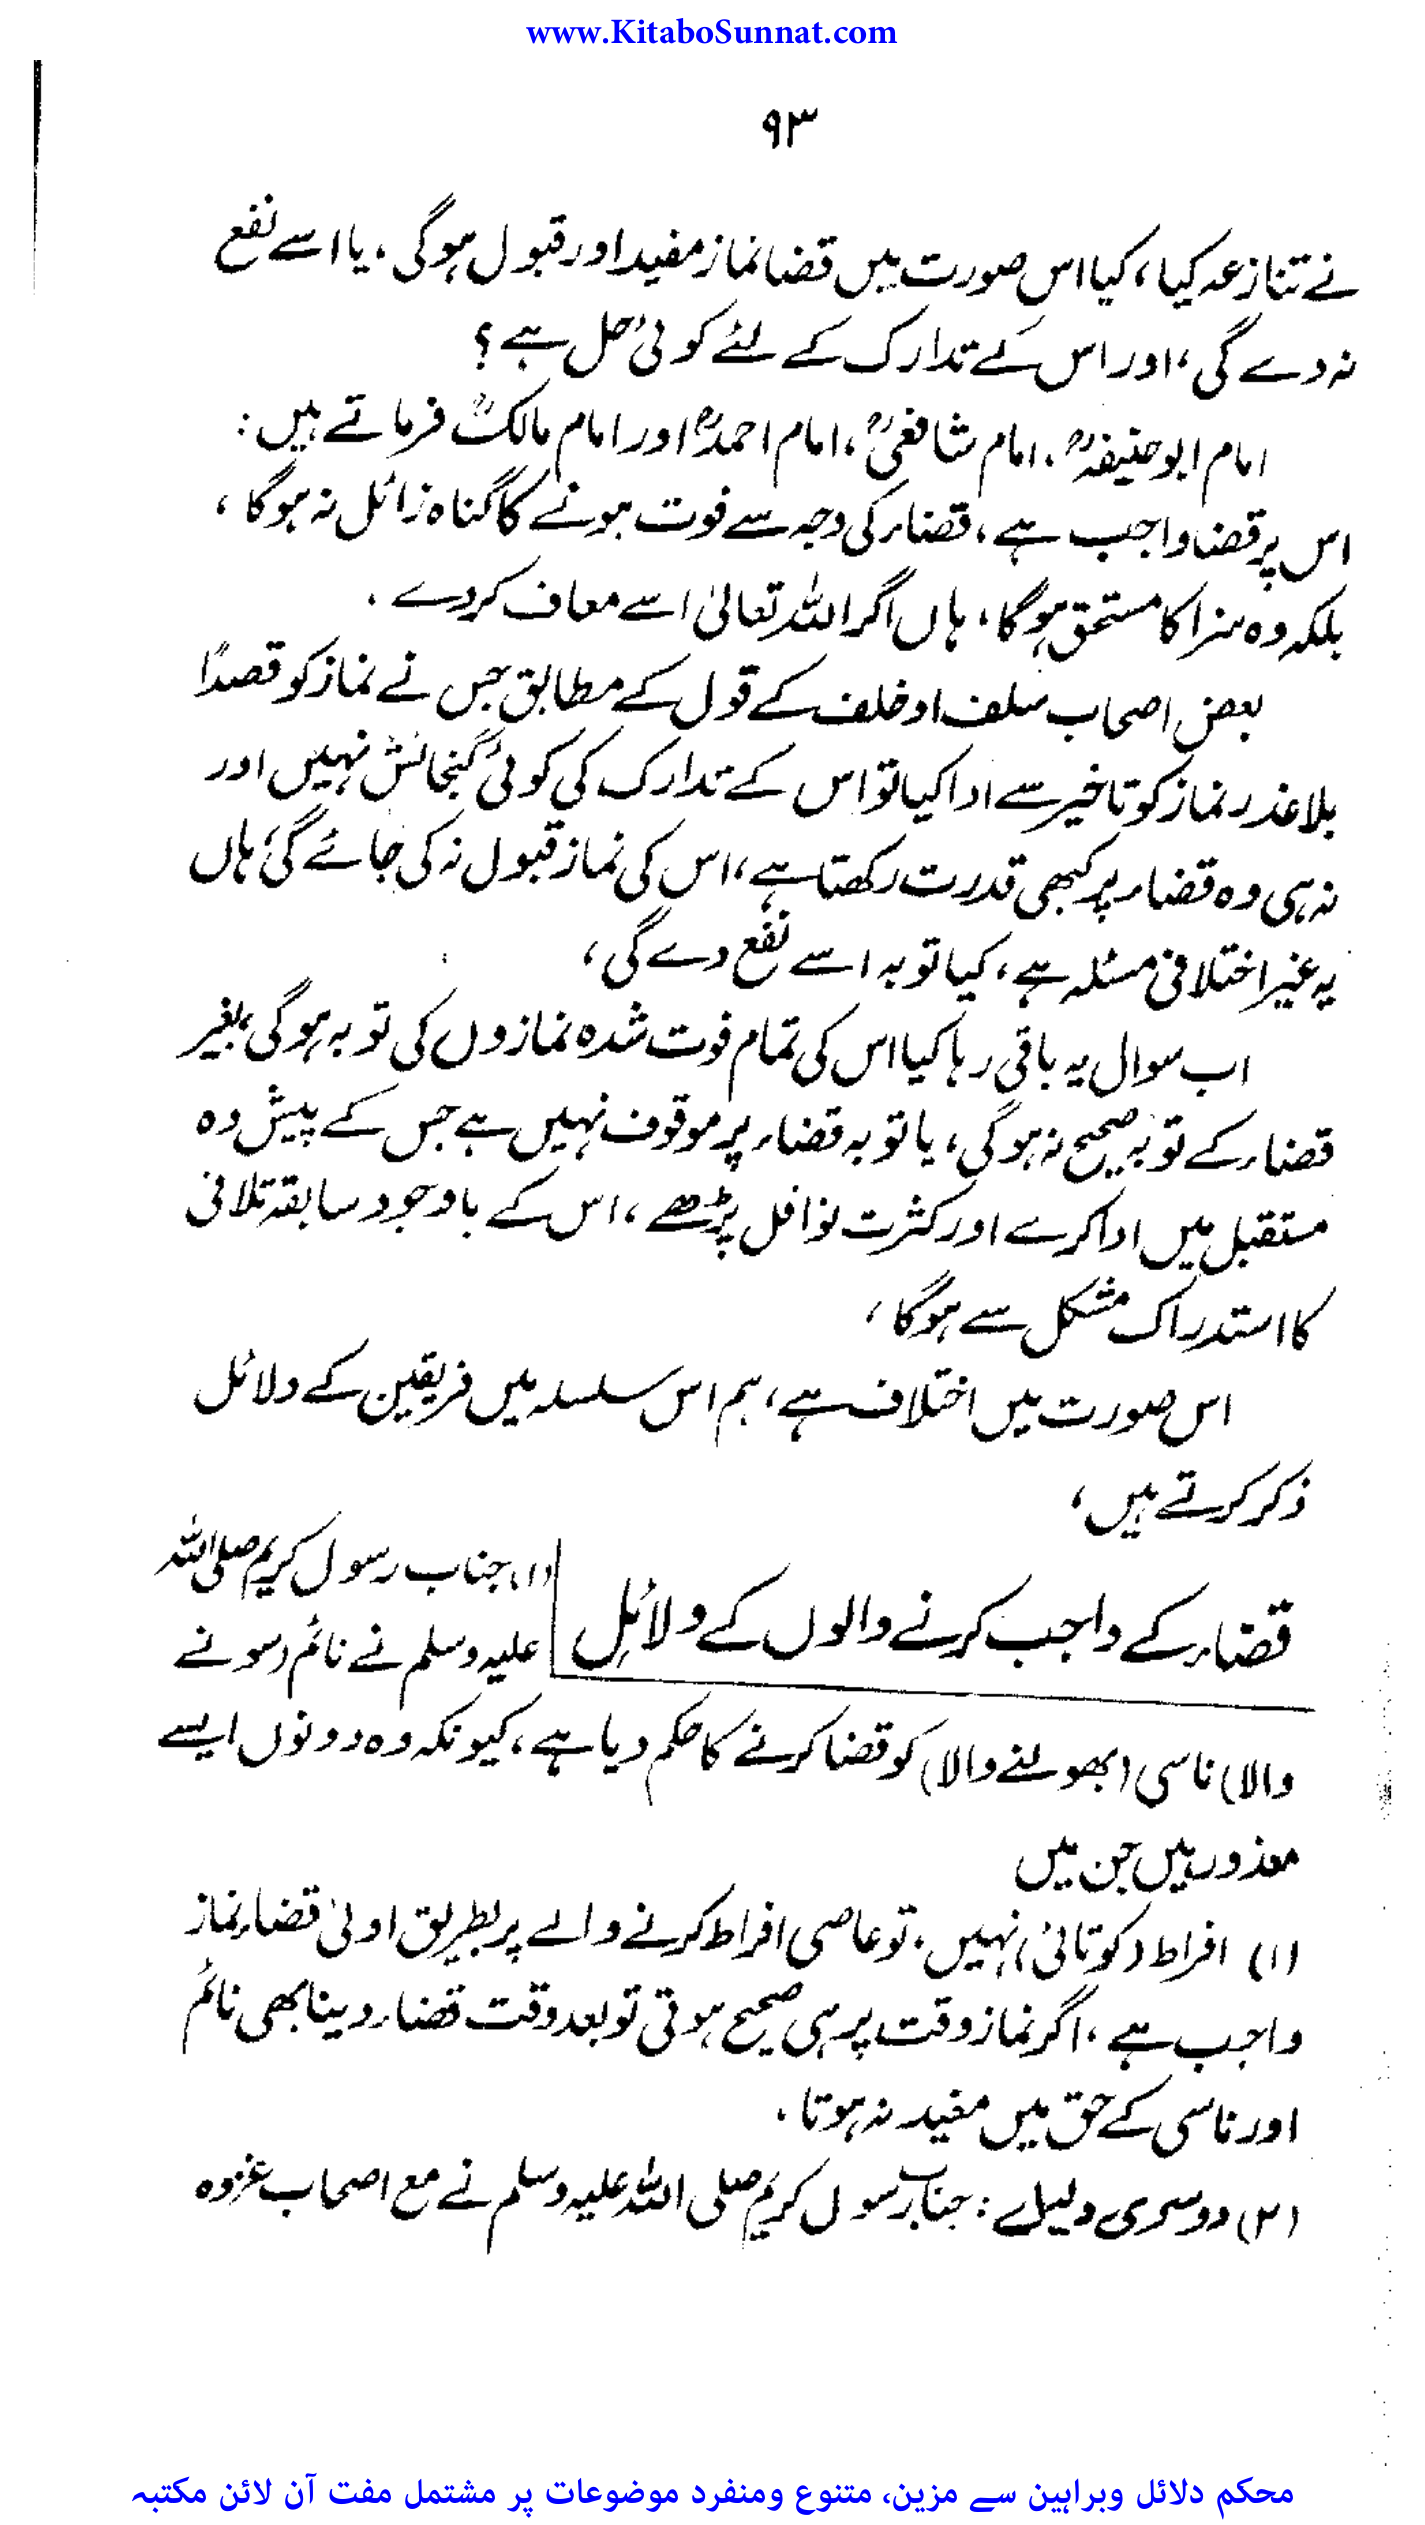 www.KitaboSunnat.com
۹۳
نے تنازعہ کیا، کیا اس صورت میں قضا نماز مفید اور قبول ہوگی، یا اسے نفع
نہ دے گی، اور اس کے تدارک کے لئے کوئی حل ہے؟
امام ابو حنیفہؒ، امام شافعیؒ، امام احمدؒ اور امام مالکؒ فرماتے ہیں:
اس پر قضا واجب ہے، قضاء کی وجہ سے فوت ہونے کا گناہ زائل نہ ہوگا،
بلکہ وہ سزا کا مستحق ہوگا، ہاں اگر اللہ تعالیٰ اسے معاف کردے۔
بعض اصحاب سلف او خلف کے قول کے مطابق جس نے نماز کو قصداً
بلا عذر نماز کو تاخیر سے ادا کیا تو اس کے تدارک کی کوئی گنجائش نہیں اور
نہ ہی وہ قضاء پر کبھی قدرت رکھتا ہے، اس کی نماز قبول نہ کی جائے گی، ہاں
یہ غیر اختلافی مسئلہ ہے، کیا توبہ اسے نفع دے گی،
اب سوال یہ باقی رہا کیا اس کی تمام فوت شدہ نمازوں کی توبہ ہوگی، بغیر
قضاء کے توبہ صحیح نہ ہوگی، یا توبہ قضاء پر موقوف نہیں ہے جس کے پیش وہ
مستقبل میں ادا کرے اور کثرت نوافل پڑھے، اس کے باوجود سابقہ تلافی
کا استدراک مشکل سے ہوگا،
اس صورت میں اختلاف ہے، ہم اس سلسلہ میں فریقین کے دلائل
ذکر کرتے ہیں،
قضاء کے واجب کرنے والوں کے دلائل
(۱) جناب رسول کریم صلی اللہ
علیہ وسلم نے نائم (سونے
والا) ناسی (بھولنے والا) کو قضا کرنے کا حکم دیا ہے، کیونکہ وہ دونوں ایسے
معذور ہیں جن میں
(۱) افراط (کوتائی) نہیں، تو عاصی افراط کرنے والے پر بطریق اولیٰ قضاء نماز
واجب ہے، اگر نماز وقت پر ہی صحیح ہوتی تو بعد وقت قضاء دینا بھی نائم
اور ناسی کے حق میں مفید نہ ہوتا۔
(۲) دوسری دلیل: جناب رسول کریم صلی اللہ علیہ وسلم نے مع اصحاب غزوہ
محکم دلائل وبراہین سے مزین، متنوع ومنفرد موضوعات پر مشتمل مفت آن لائن مکتبہ